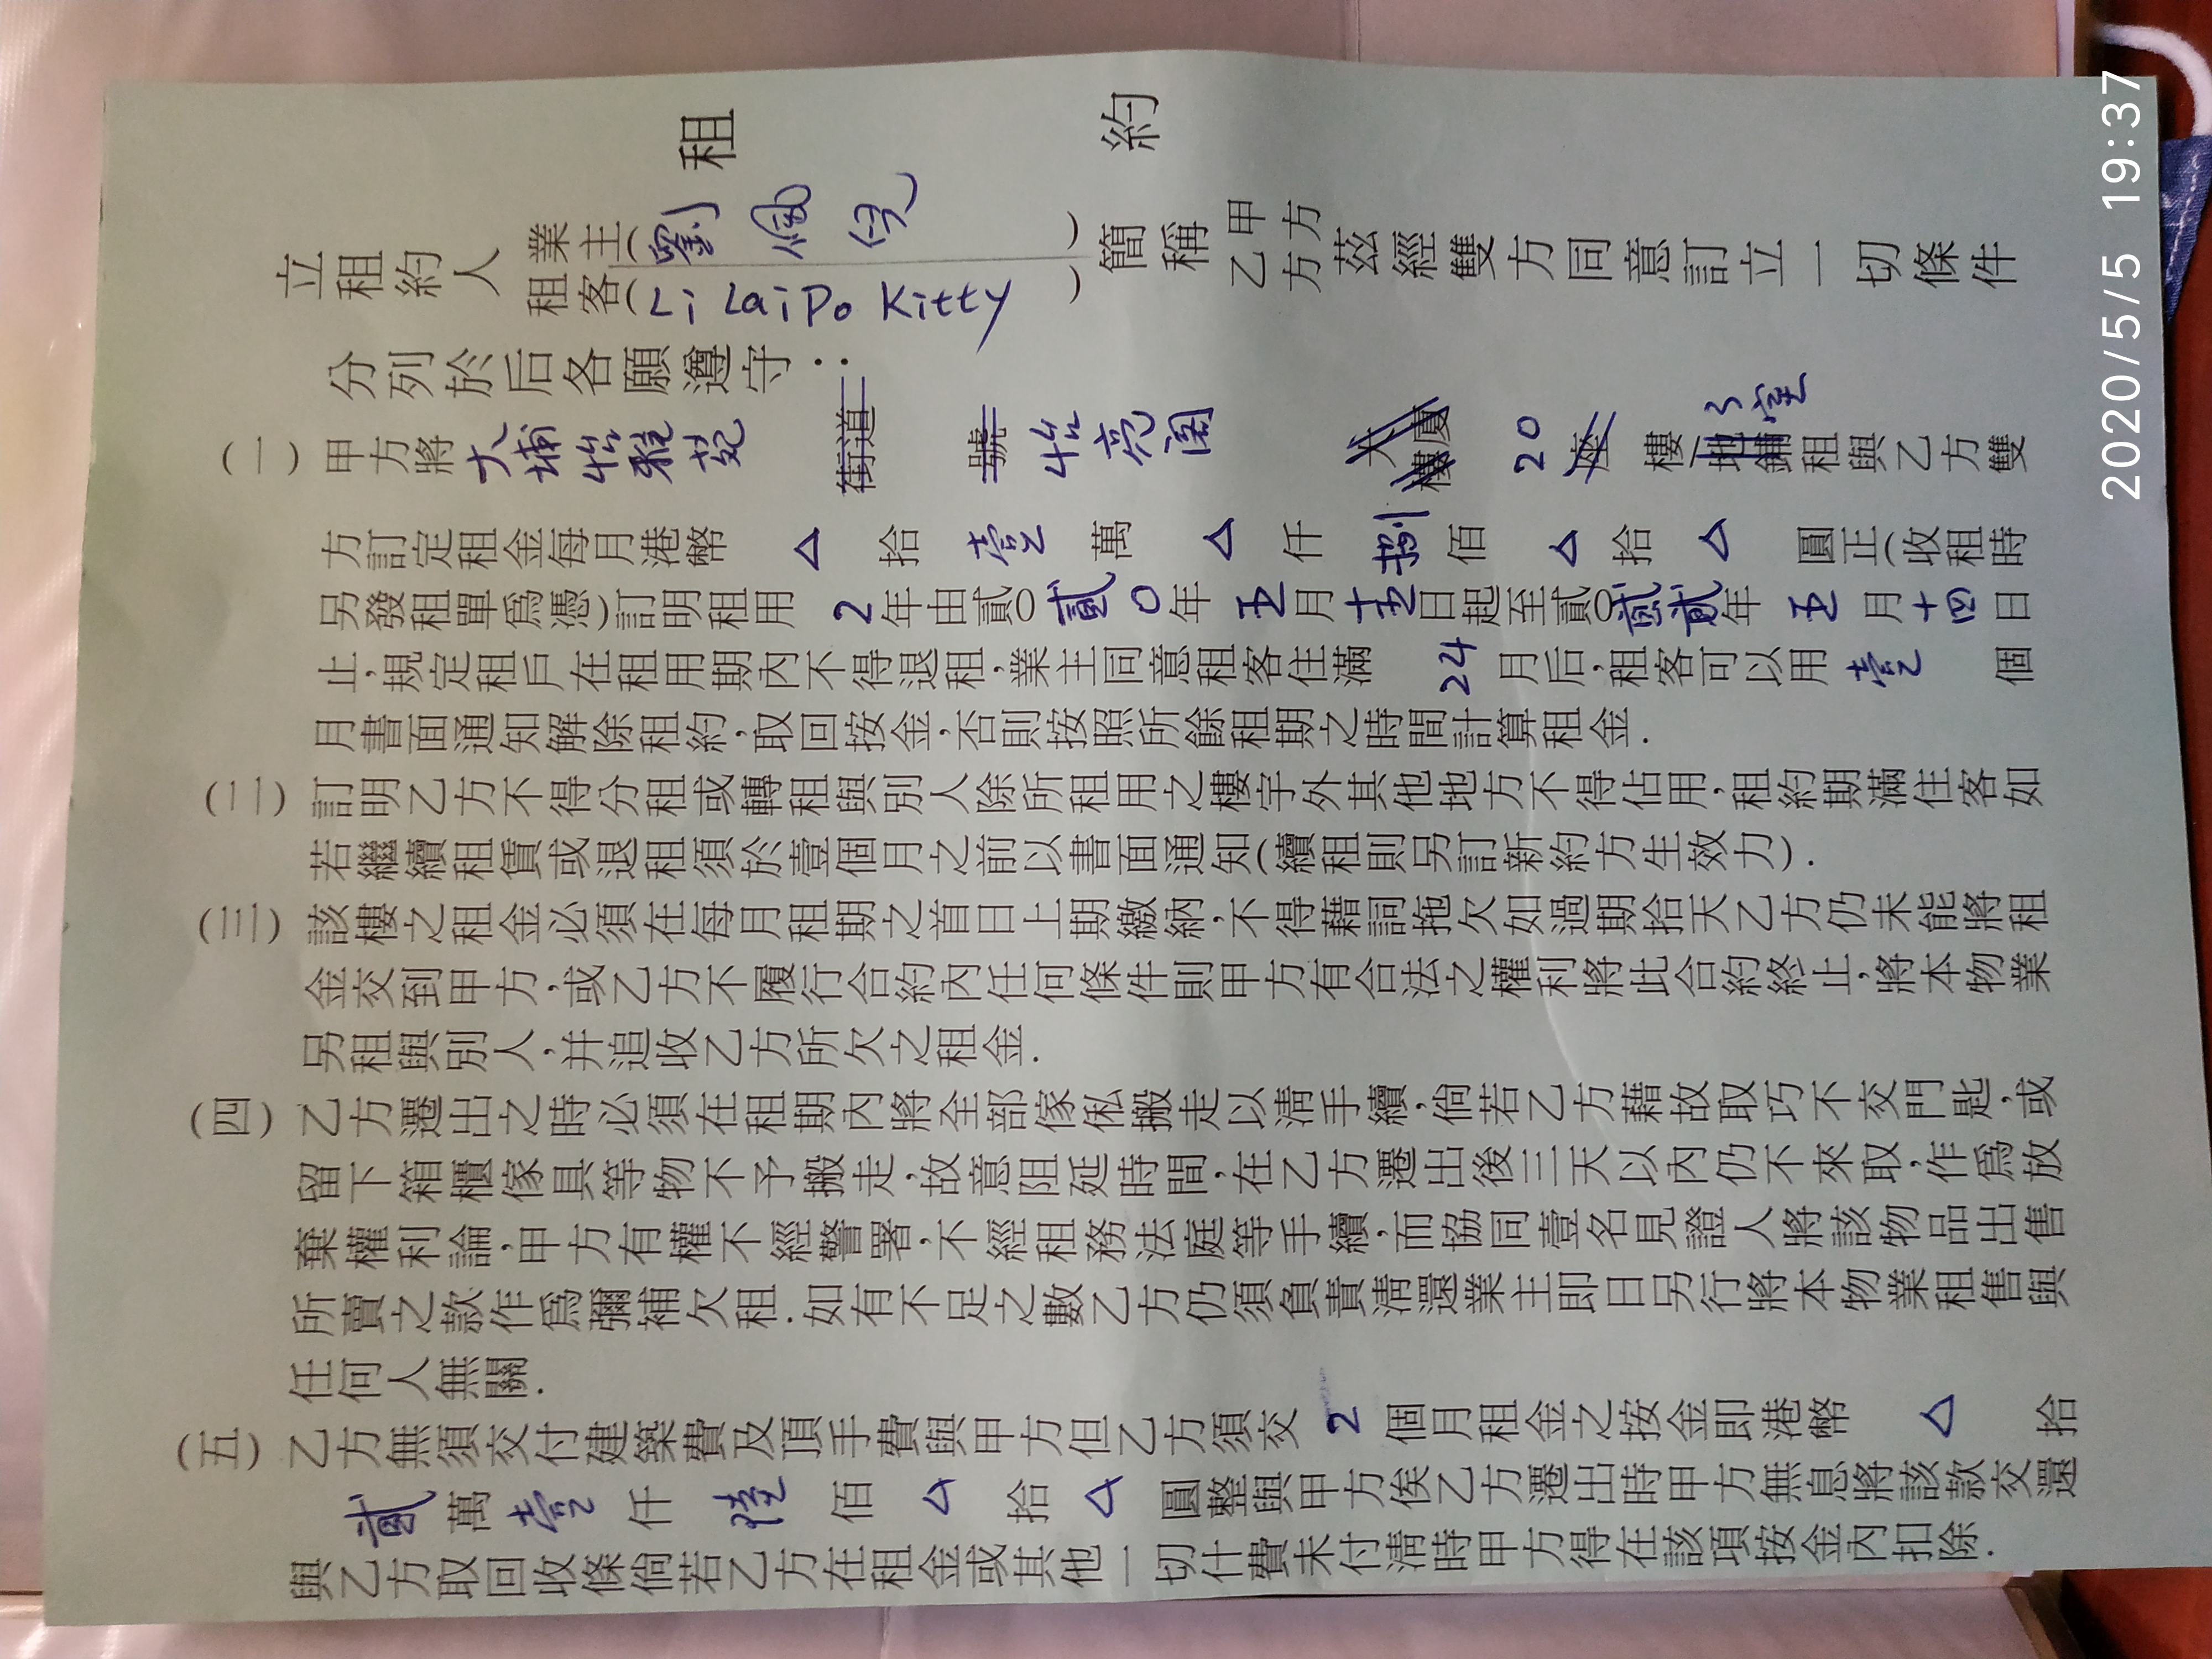 租 約
立租約人 業主(劉佩兒 ) 簡稱 甲方 茲經雙方同意訂立一切條件
租客(Li Lai Po Kitty ) 乙方
分列於后各願遵守：
(一) 甲方將大埔怡雅苑 街道 號 怡亮閣 大廈 樓 20 座 樓 地鋪 3室 租與乙方雙
方訂定租金每月港幣 △ 拾 壹 萬 △ 仟 捌 佰 △ 拾 △ 圓正(收租時
另發租單爲憑)訂明租用 2 年由貳○貳0年 五月十五日起至貳○貳貳年 五 月十四日
止,規定租戶在租用期內不得退租,業主同意租客住滿 24 月后,租客可以用 壹 個
月書面通知解除租約,取回按金,否則按照所餘租期之時間計算租金.
(二) 訂明乙方不得分租或轉租與別人除所租用之樓宇外其他地方不得佔用,租約期滿住客如
若繼續租賃或退租須於壹個月之前以書面通知(續租則另訂新約方生效力).
(三) 該樓之租金必須在每月租期之首日上期繳納,不得藉詞拖欠如過期拾天乙方仍未能將租
金交到甲方,或乙方不履行合約內任何條件則甲方有合法之權利將此合約終止,將本物業
另租與別人,幷追收乙方所欠之租金.
(四) 乙方遷出之時必須在租期內將全部傢俬搬走以淸手續,倘若乙方藉故取巧不交門匙,或
留下箱櫃傢具等物不予搬走,故意阻延時間,在乙方遷出後三天以內仍不來取,作爲放
棄權利論,甲方有權不經警署,不經租務法庭等手續,而協同壹名見證人將該物品出售
所賣之款作爲彌補欠租.如有不足之數乙方仍須負責淸還業主即日另行將本物業租售與
任何人無關.
(五) 乙方無須交付建築費及頂手費與甲方但乙方須交 2 個月租金之按金即港幣 △ 拾
貳 萬 壹 仟 陸 佰 △ 拾 △ 圓整與甲方俟乙方遷出時甲方無息將該款交還
與乙方取回收條倘若乙方在租金或其他一切什費未付淸時甲方得在該項按金內扣除.
2020/5/5 19:37